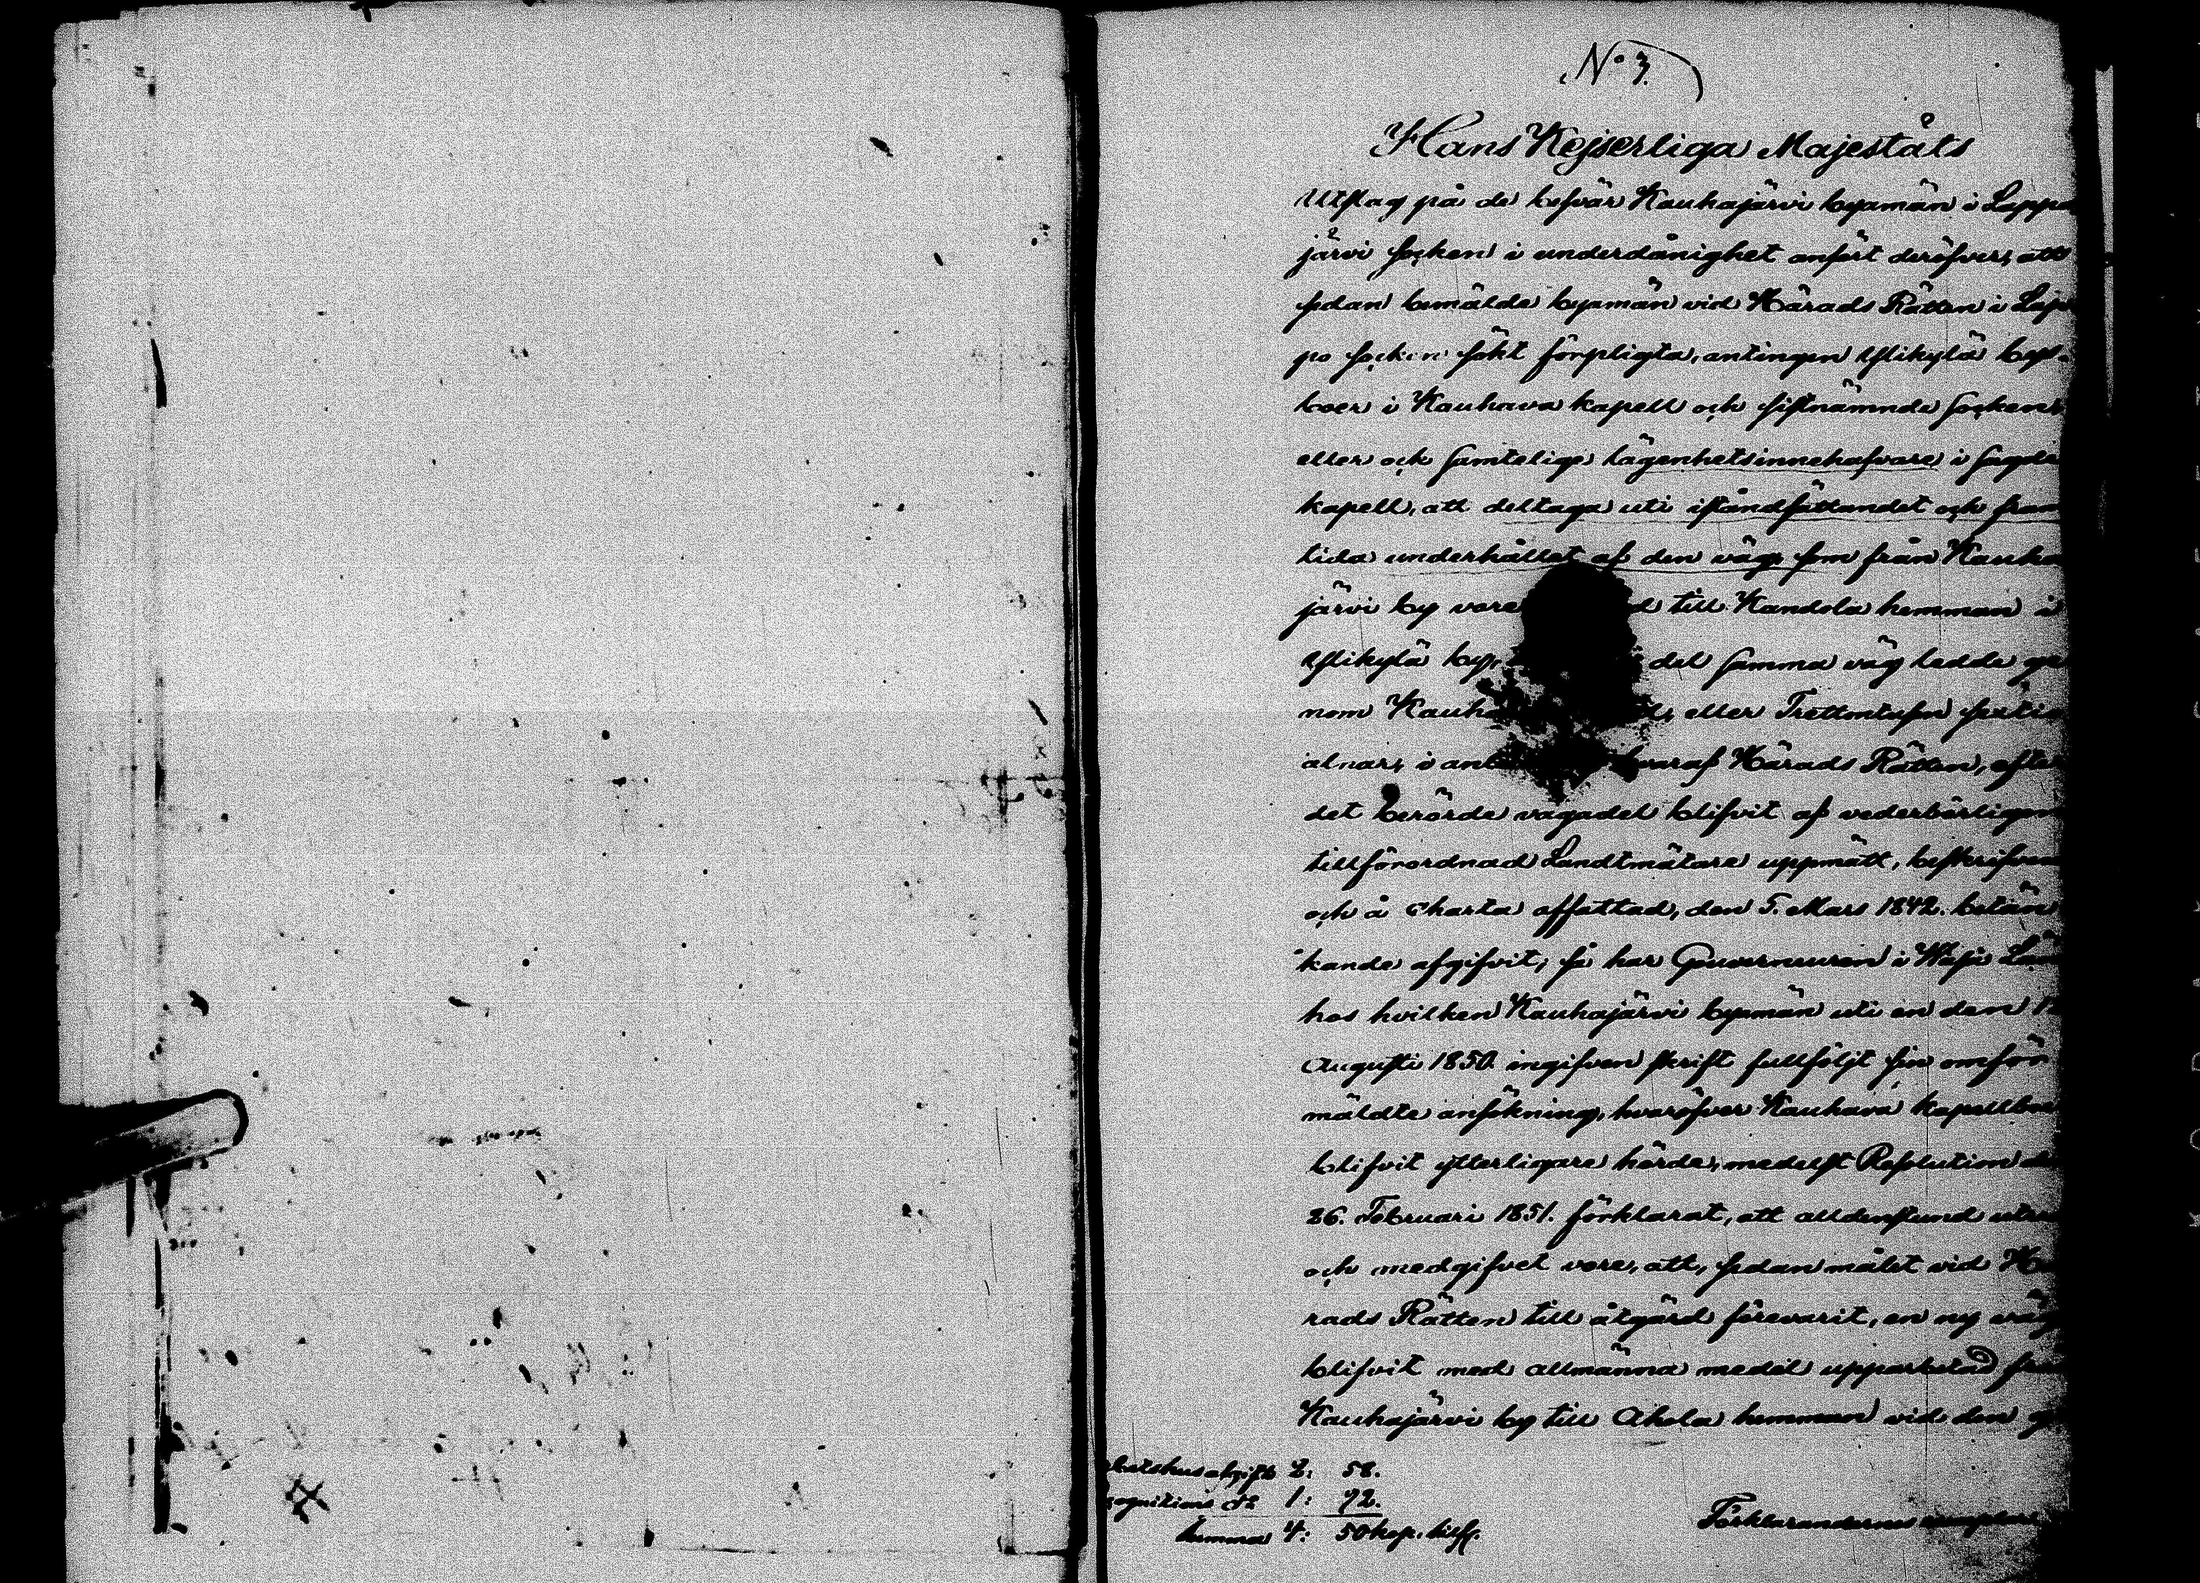 No 3.
Hans Kejserliga Majestäts
Utslag på de besvär Kauhajärvi byamän i Lappo
järvi socken i underdånighet anfört deröfver, att
sedan bemälde byamän vid Härads Rätten i Lap
po socken sökt förpligta, antingen Ylikylä bys
boer i Kauhava kapell och sistnämnde socken,
eller och samtelige lägenhetsinnehafvare i sagde
kapell, att deltaga uti iståndsättandet och fram
tida underhållet af den väg som från Kauha
järvi by vore d till Kandola hemman i
Ylikylä by, del samma väg ledde ge
nom Kauha eller Trettontusen
alnar, i anl hvaraf Härads Rätten, efter
det berörde vägadel blifvit af vederbörligen
tillförordnad Landtmätare uppmätt, beskrifven
och å Charta affattad, den 5. Mars 1842. betän
kande afgifvit; så har Gouverneuren i Wasa Län
hos hvilken Kauhajärvi byamän uti en den 1
Augusti 1850 ingifven skrift fullföljt sin omför
mäldte ansökning, hvaröfver Kauhava kapellboer
blifvit ytterligare hörde, medelst Resolution de
26. Februari 1851. förklarat, att alldenstund utre
och medgifvet vore, att, sedan målet vid Hä
rads Rätten till åtgärd förevarit, en ny väg
blifvit med allmänna medel upparbetad från
Kauhajärvi by till Ahola hemman vid den g
betshusafgift 2: 58.
cognitions do 1: 92.
Summa 4: 50 kop. silf.
Förklarandernes exemplar